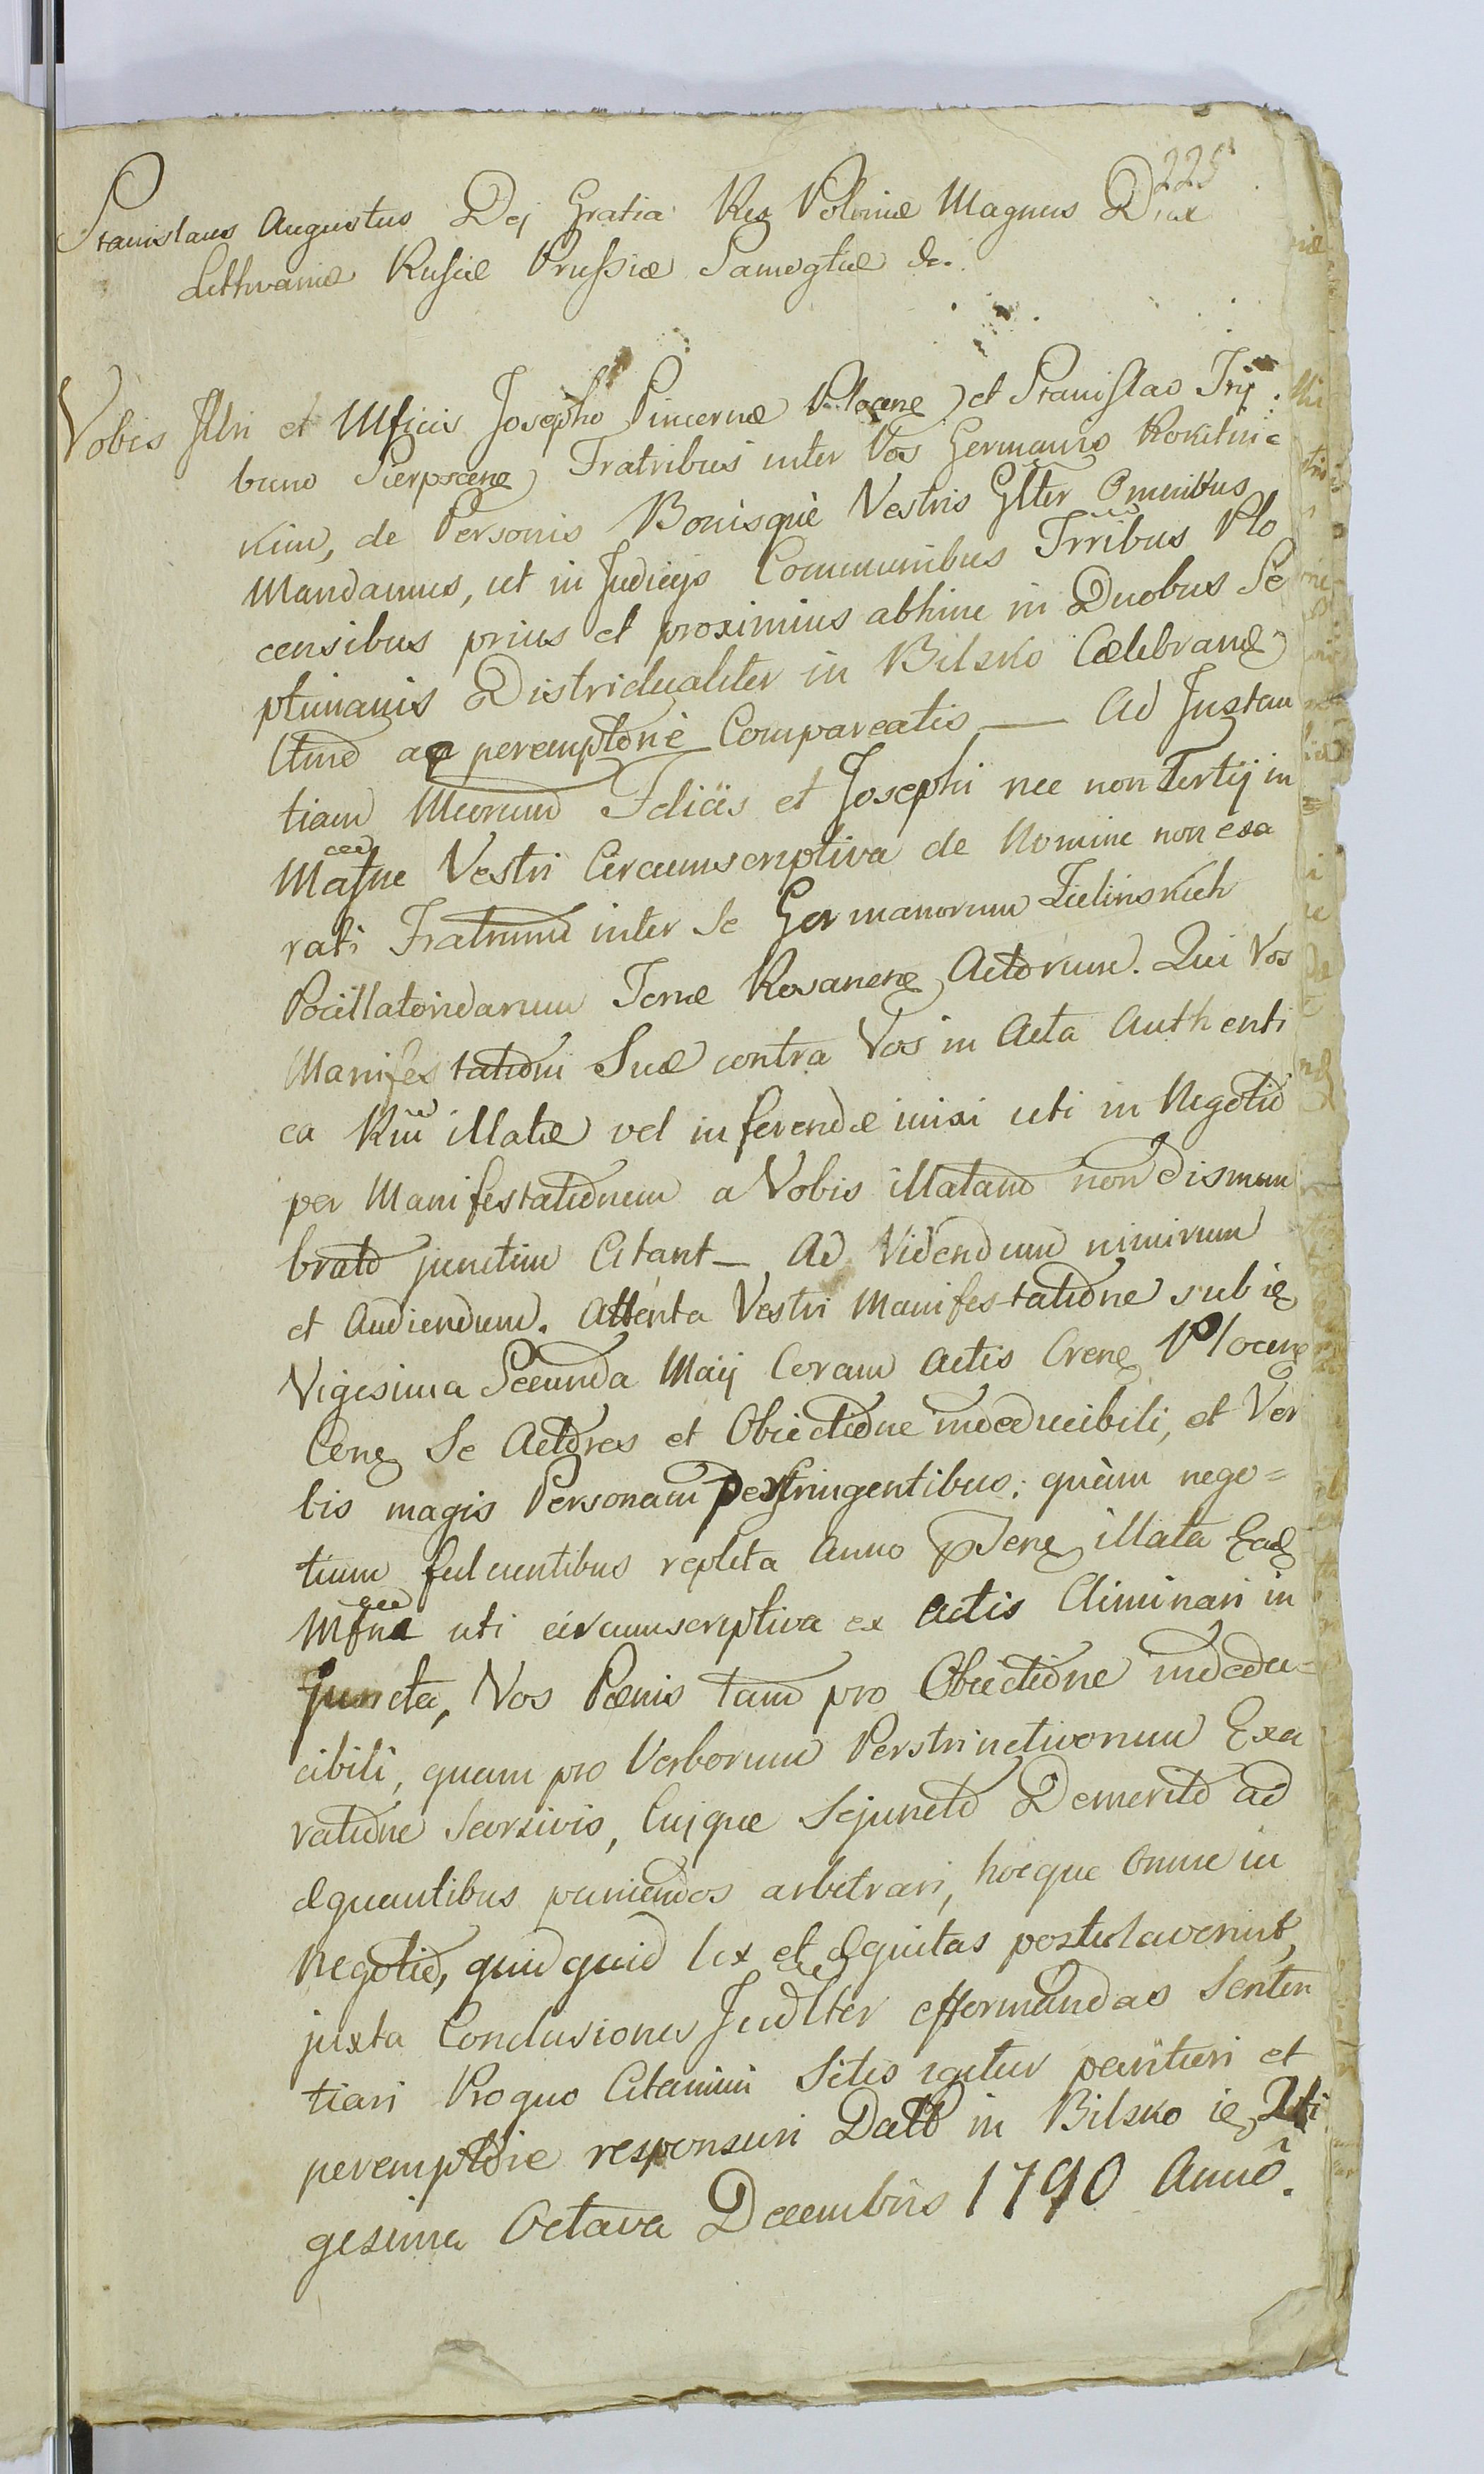 225
Stanislaus Augustus Dej Gratia Rex Poloniæ Magnus Dux
Lithvaniæ Russiæ Prussiæ Samogitiæ &c.
Vobis Illri et Mficis Josepho Pincernæ Plocen et Stanislao Tri
buno Sierpscen Fratribus inter Vos Germanis Rokitnic
kim, de Personis Bonisquè Vestris Glter Omnibus
Mandamus, ut in Judicijs Communibus Trribus Plo
censibus prius et proximius abhinc in Duobus Se
ptimanis Districtualiter in Bilsko Celebrand
ltime ac peremptoriè Compareatis — Ad Instan
tiam Mcorum Felicis et Josephi nec non Tertij in
Mafne Vestri Circumscriptiva de Nomine non exa
rati Fratrum inter Se Germanorum Zielinskich
Pocillatoridarum Terræ Rosanen Actorum. Qui Vos
Manifestationi Suæ contra Vos in Acta Authenti
ca Rni illatæ vel inferendæ inixi uti in Negotio
per Manifestationem a Vobis illatam non dismem
brato junctim Citant — Ad Videndum nimirum
et Audiendum. Attenta Vestri Manifestatione sub ie
Vigesima Secunda Maij Coram Actis Cren Plocen
Cen Se Actores et Obiectione indeducibili, et Ver
bis magis Personam perstringentibus: quàm nego=
tium fulcientibus repleta Anno Psen illata Ead
Mfne uti circumscriptiva ex Actis Eliminari in
juncta, Vos Pœnis tam pro Obiectione indedu=
cibili, quam pro Verborum Perstrinctivorum Exa
ratione Seorsivis, Cuique Sejuncto Demerito ad
æquantibus puniendos arbitrari, hocque Omne in
Negotio, quidquid lex et æquitas postulaverint,
juxta Conclusiones Judlter efformandas Senten
tiari Pro quo Citamini Sitis igitur parituri et
peremptorie responsuri Datt in Bilsko ie Vi
gesima Octava Decembris 1790 Annô.